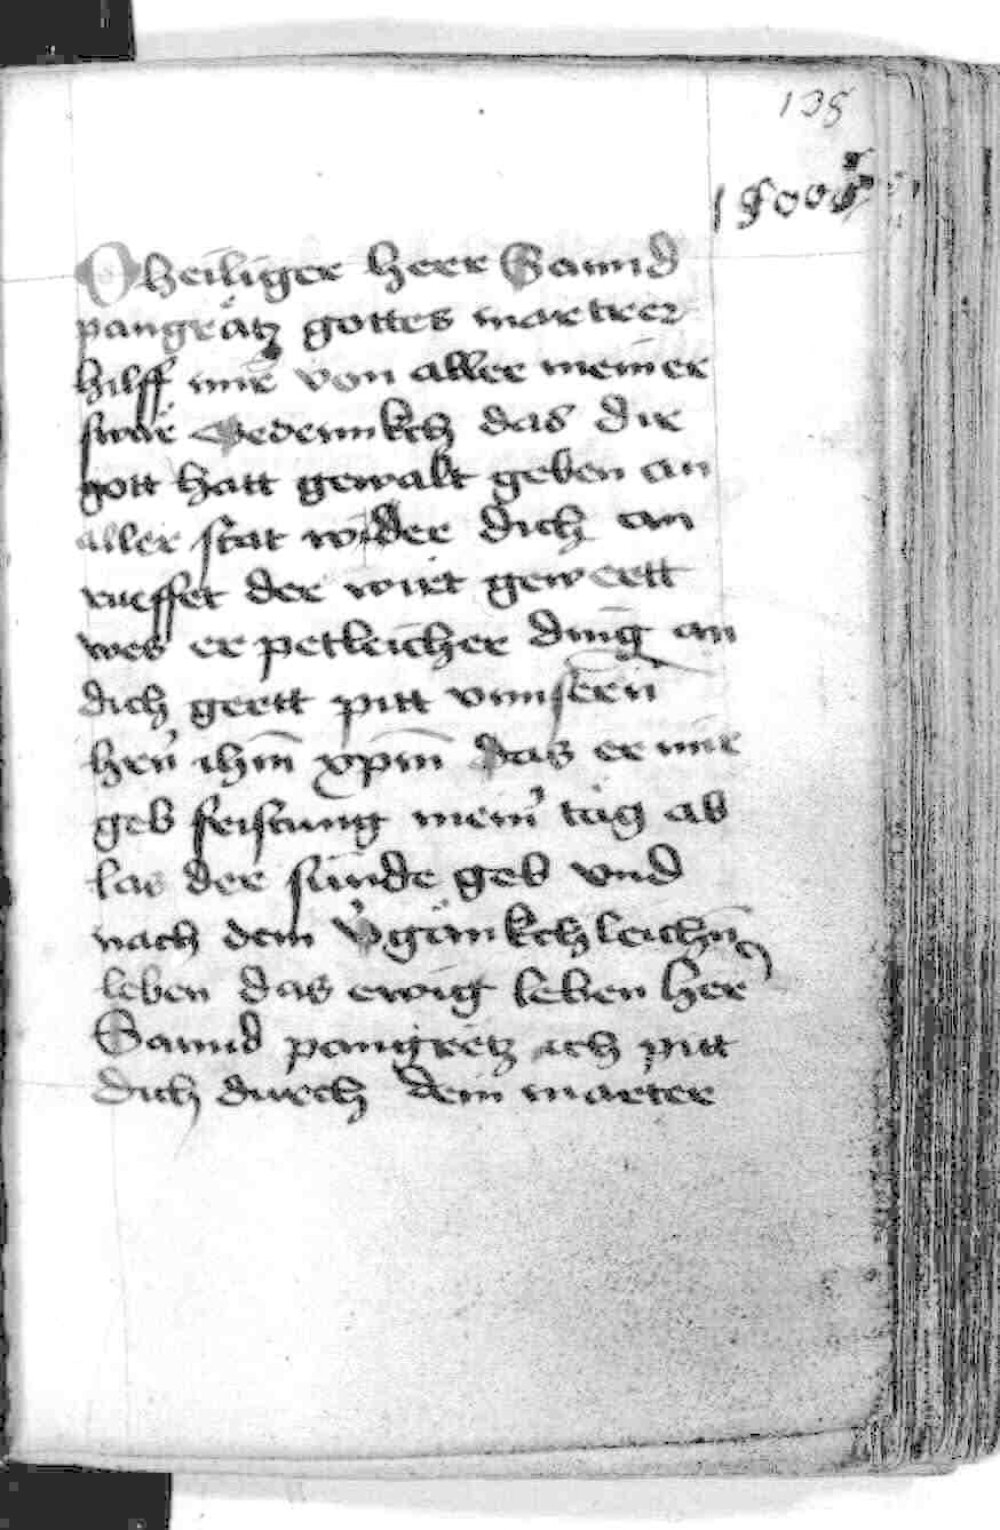 135
O heiliger herr Sannd
pangräcz gottes martrer
hilff mir von aller meiner
swär Gedennkch das dir
gott hatt gewalt geben an
aller stat wider dich an
rueffet der wirt gewertt
wes er petleicher ding an
dich gertt pitt vnnsern̄
hrn̄ ihm̄ xp̄m das er mir
geb feistung mein̾ täg ab
las der sünde geb vnd
nach dem v̾gänkchleichn̄
leben das ewig leben her̾
Sannd pangrecz ich pitt
dich durch dein marter